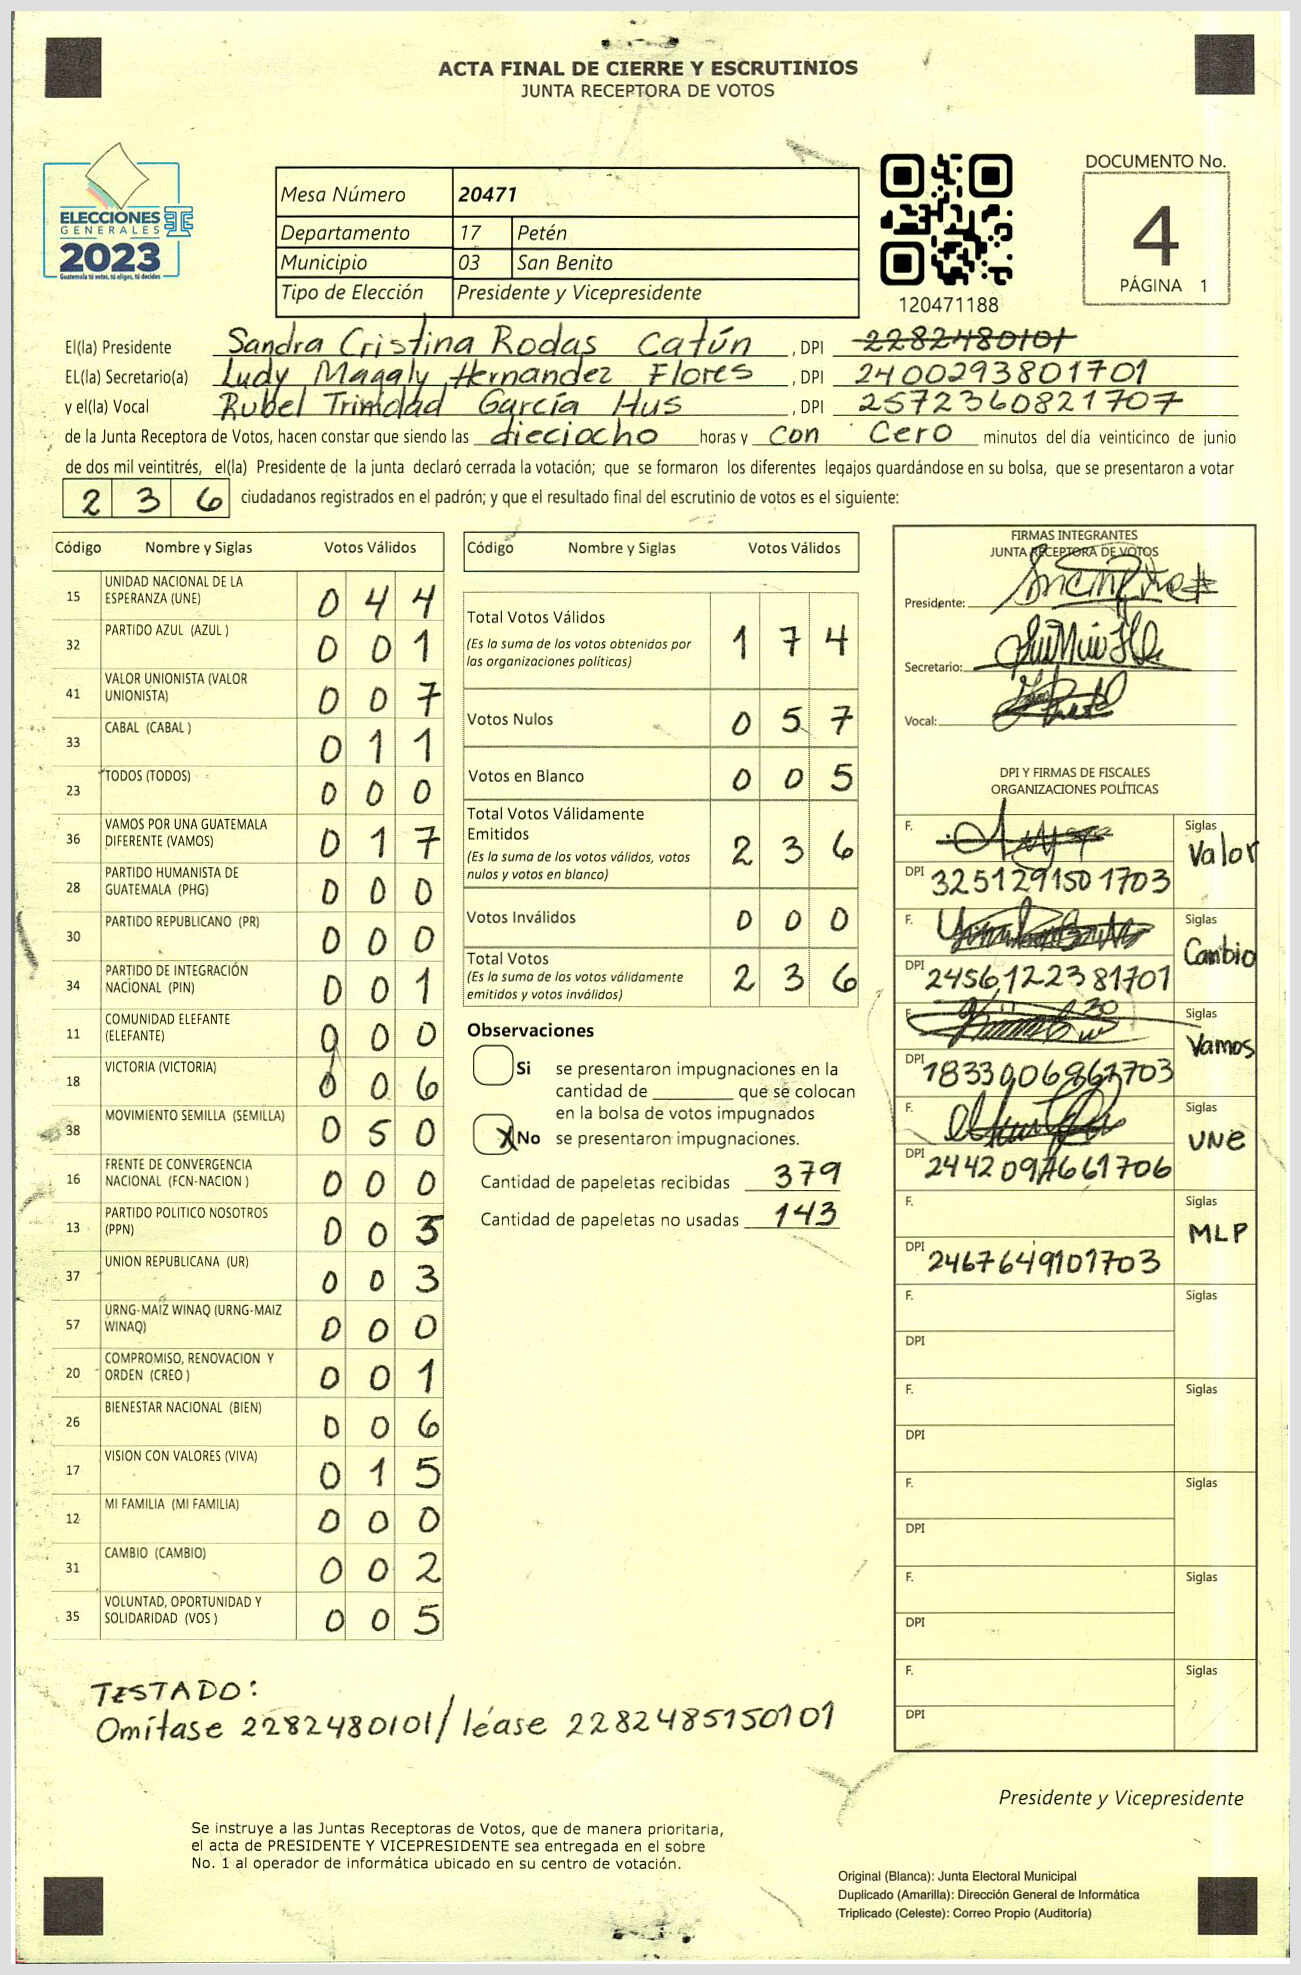 ACTA FINAL DE CIERRE Y ESCRUTINIOS
JUNTA RECEPTORA DE VOTOS
ELECCIONES
GENERALES
2023
Guatemala tú votas, tú eliges, tú decides
Mesa Número 20471
Departamento 17 Petén
Municipio 03 San Benito
Tipo de Elección Presidente y Vicepresidente
120471188
DOCUMENTO No.
4
PÁGINA 1
El(la) Presidente Sandra Cristina Rodas Catún , DPI 2282480101
EL(la) Secretario(a) Ludy Magaly Hernandez Flores , DPI 2400293801701
y el(la) Vocal Rubel Trinidad García Hus , DPI 2572360821707
de la Junta Receptora de Votos, hacen constar que siendo las dieciocho horas y con Cero minutos del día veinticinco de junio
de dos mil veintitrés, el(la) Presidente de la junta declaró cerrada la votación; que se formaron los diferentes legajos guardándose en su bolsa, que se presentaron a votar
2 3 6 ciudadanos registrados en el padrón; y que el resultado final del escrutinio de votos es el siguiente:
Código Nombre y Siglas Votos Válidos
15 UNIDAD NACIONAL DE LA ESPERANZA (UNE) 0 4 4
32 PARTIDO AZUL (AZUL ) 0 0 1
41 VALOR UNIONISTA (VALOR UNIONISTA) 0 0 7
33 CABAL (CABAL ) 0 1 1
23 TODOS (TODOS) 0 0 0
36 VAMOS POR UNA GUATEMALA DIFERENTE (VAMOS) 0 1 7
28 PARTIDO HUMANISTA DE GUATEMALA (PHG) 0 0 0
30 PARTIDO REPUBLICANO (PR) 0 0 0
34 PARTIDO DE INTEGRACIÓN NACIONAL (PIN) 0 0 1
11 COMUNIDAD ELEFANTE (ELEFANTE) 0 0 0
18 VICTORIA (VICTORIA) 0 0 6
38 MOVIMIENTO SEMILLA (SEMILLA) 0 5 0
16 FRENTE DE CONVERGENCIA NACIONAL (FCN-NACION ) 0 0 0
13 PARTIDO POLITICO NOSOTROS (PPN) 0 0 5
37 UNION REPUBLICANA (UR) 0 0 3
57 URNG-MAIZ WINAQ (URNG-MAIZ WINAQ) 0 0 0
20 COMPROMISO, RENOVACION Y ORDEN (CREO ) 0 0 1
26 BIENESTAR NACIONAL (BIEN) 0 0 6
17 VISION CON VALORES (VIVA) 0 1 5
12 MI FAMILIA (MI FAMILIA) 0 0 0
31 CAMBIO (CAMBIO) 0 0 2
35 VOLUNTAD, OPORTUNIDAD Y SOLIDARIDAD (VOS ) 0 0 5
Código Nombre y Siglas Votos Válidos
Total Votos Válidos 1 7 4
(Es la suma de los votos obtenidos por
las organizaciones políticas)
Votos Nulos 0 5 7
Votos en Blanco 0 0 5
Total Votos Válidamente
Emitidos 2 3 6
(Es la suma de los votos válidos, votos
nulos y votos en blanco)
Votos Inválidos 0 0 0
Total Votos 2 3 6
(Es la suma de los votos válidamente
emitidos y votos inválidos)
Observaciones
Si se presentaron impugnaciones en la
cantidad de ________ que se colocan
en la bolsa de votos impugnados
X No se presentaron impugnaciones.
Cantidad de papeletas recibidas 379
Cantidad de papeletas no usadas 143
FIRMAS INTEGRANTES
JUNTA RECEPTORA DE VOTOS
Presidente:
Secretario:
Vocal:
DPI Y FIRMAS DE FISCALES
ORGANIZACIONES POLÍTICAS
F. Siglas Valor
DPI 3251291501703
F. Siglas Cambio
DPI 2456122381701
F. Siglas Vamos
DPI
F. Siglas UNE
DPI
F. Siglas MLP
DPI 2467649101703
F. Siglas
DPI
F. Siglas
DPI
F. Siglas
DPI
F. Siglas
DPI
F. Siglas
DPI
TESTADO:
Omítase 2282480101/ léase 2282485150101
Presidente y Vicepresidente
Se instruye a las Juntas Receptoras de Votos, que de manera prioritaria,
el acta de PRESIDENTE Y VICEPRESIDENTE sea entregada en el sobre
No. 1 al operador de informática ubicado en su centro de votación.
Original (Blanca): Junta Electoral Municipal
Duplicado (Amarilla): Dirección General de Informática
Triplicado (Celeste): Correo Propio (Auditoría)